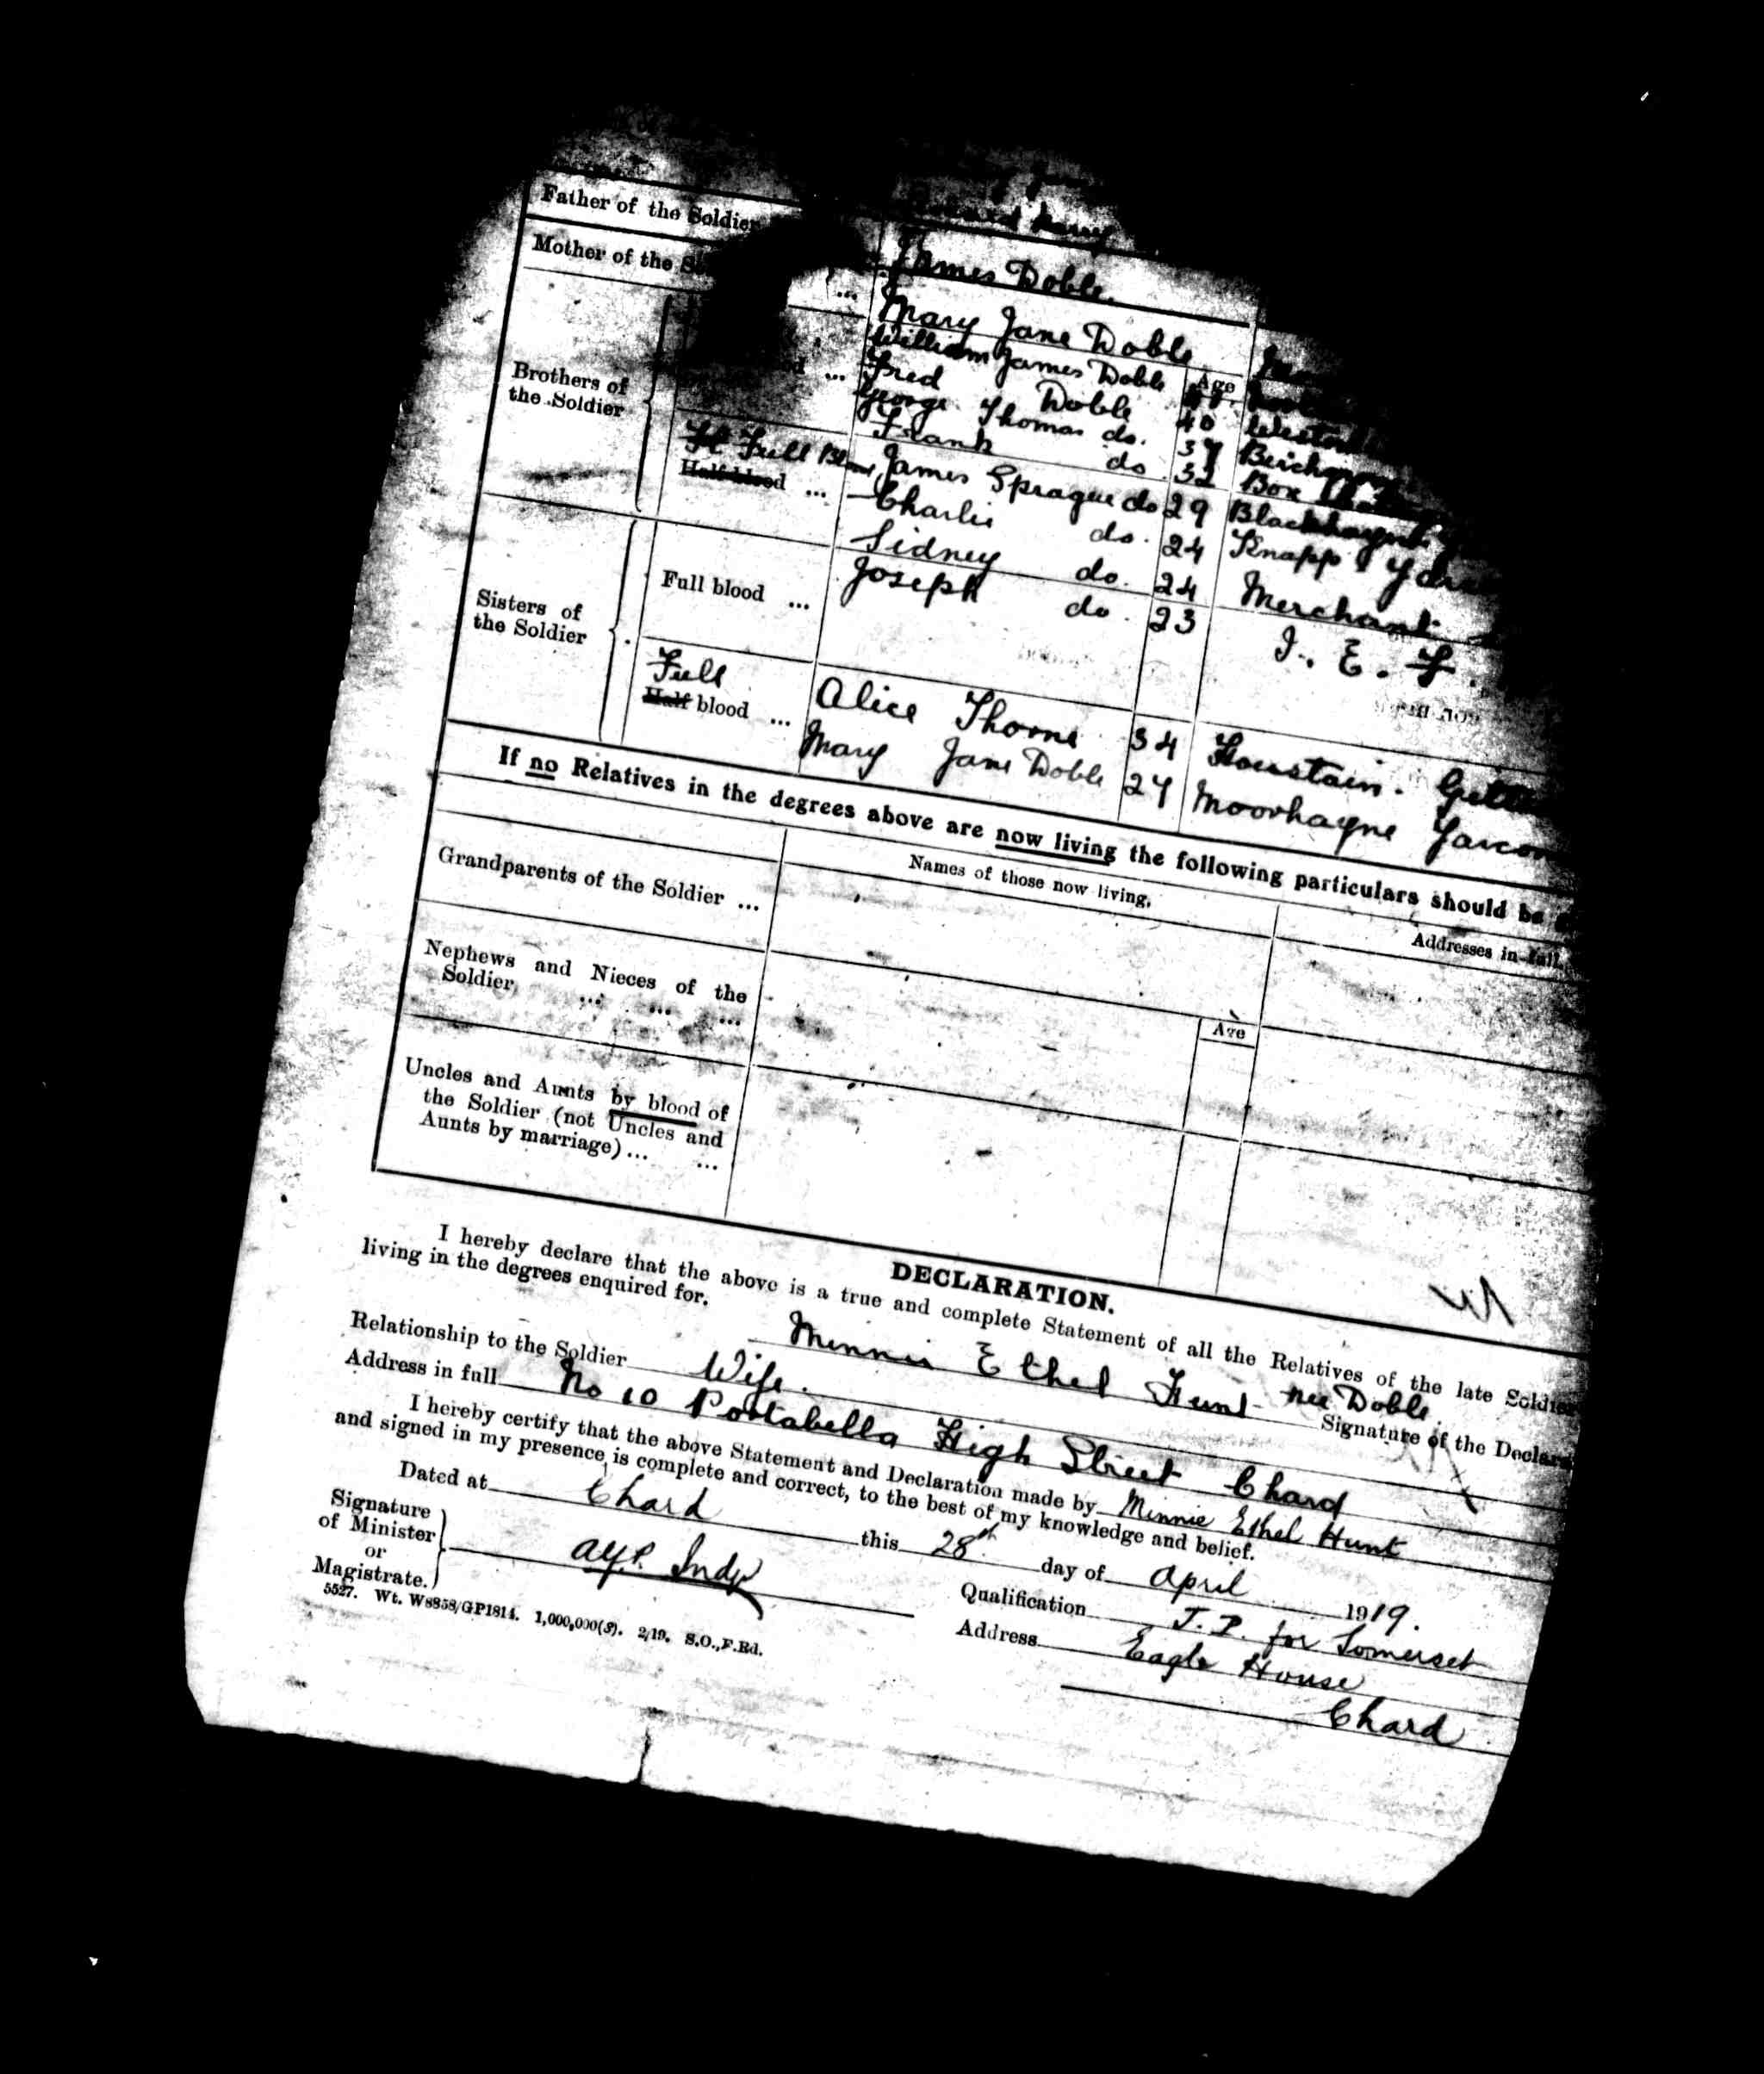 Father of the Soldier
James Doble.
Mother of the
...
Mary Jane Doble
Brothers of
the Soldier
...
Age
William James Doble
Fred Doble 40
George Thomas do. 37
Frank do 32 Box
Full
Half blood ...
James Sprague do 29
Charlie do. 24 Knapp
Sidney do. 24 Merchant
Joseph do. 23 I. E. F.
Sisters of
the Soldier
Full blood ...
Full
Half blood ...
Alice Thorne 34
Mary Jane Doble 27 Moorhayne
If no Relatives in the degrees above are now living the following particulars should be
Names of those now living.
Addresses in full.
Grandparents of the Soldier ...
Nephews and Nieces of the
Soldier, ... ... ...
Age
Uncles and Aunts by blood of
the Soldier (not Uncles and
Aunts by marriage) ... ...
DECLARATION.
I hereby declare that the above is a true and complete Statement of all the Relatives of the late Soldier
living in the degrees enquired for.
Minnie Ethel Hunt nee Doble.
Signature of the
Relationship to the Soldier Wife.
Address in full No 10 Portabella High Street Chard
I hereby certify that the above Statement and Declaration made by Minnie Ethel Hunt
and signed in my presence is complete and correct, to the best of my knowledge and belief.
Dated at Chard this 28th day of April 1919.
Signature
of Minister
or
Magistrate.
Qualification J.P. for Somerset
Address Eagle House
Chard
5527. Wt. W8858/GP1814. 1,000,000(8). 2/19. S.O.,F.Rd.